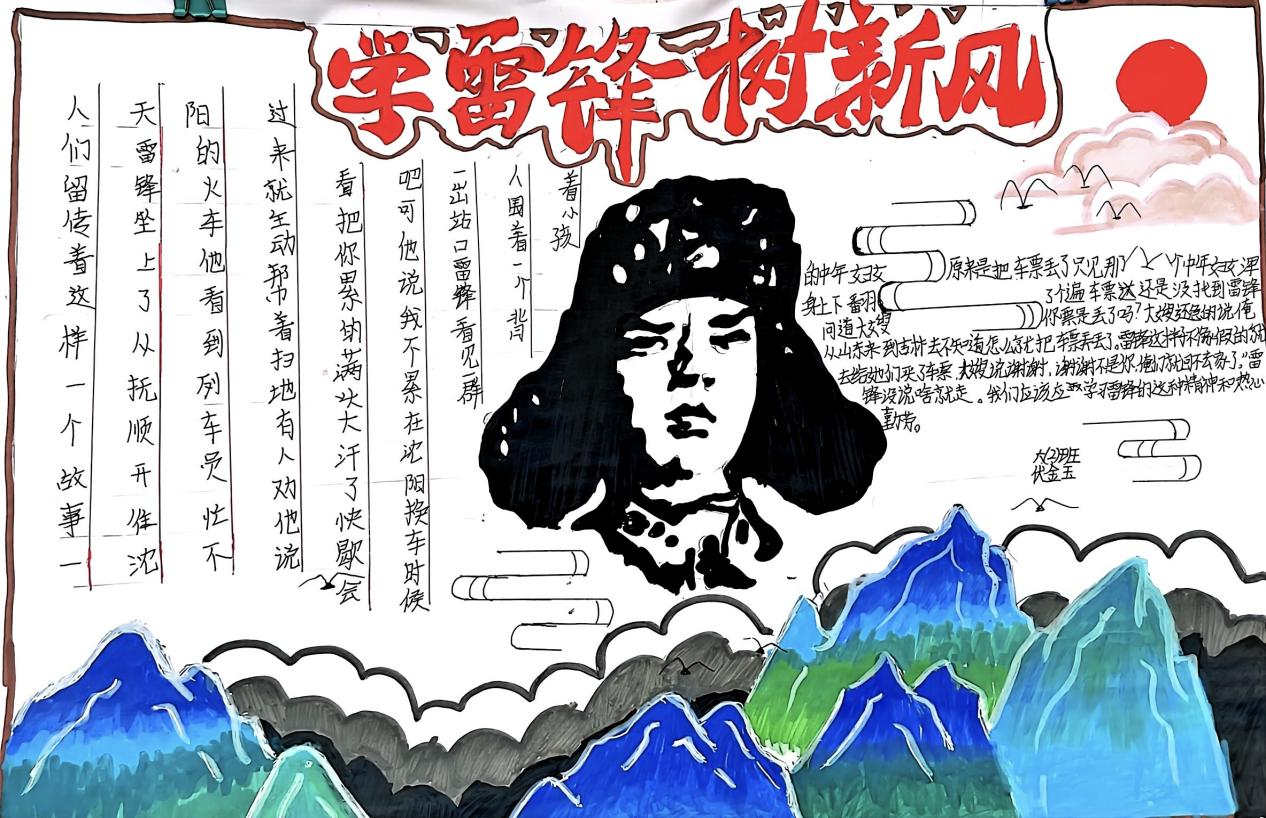 学雷锋 树新风
人们留传着这样一个故事一
天雷锋坐上了从抚顺开往沈
阳的火车他看到列车员忙不
过来就主动帮着扫地有人劝他说
看把你累的满头大汗了快歇会
吧可他说我不累在沈阳换车时候
一出站口雷锋看见一群
人围着一个背
着小孩
的中年妇女
原来是把车票丢了只见那个中年妇女浑
身上下翻
了个遍车票还是没找到雷锋
问道大嫂
你票是丢了吗?大嫂还急的说俺
从山东来到吉林去不知道怎么就把车票丢了。雷锋
去给她们买了车票 大嫂说谢谢,谢谢不是你,俺们就回不去家了。"雷
锋没说啥就走。我们应该学习雷锋的这种精神和热心
勤劳。
伏金玉